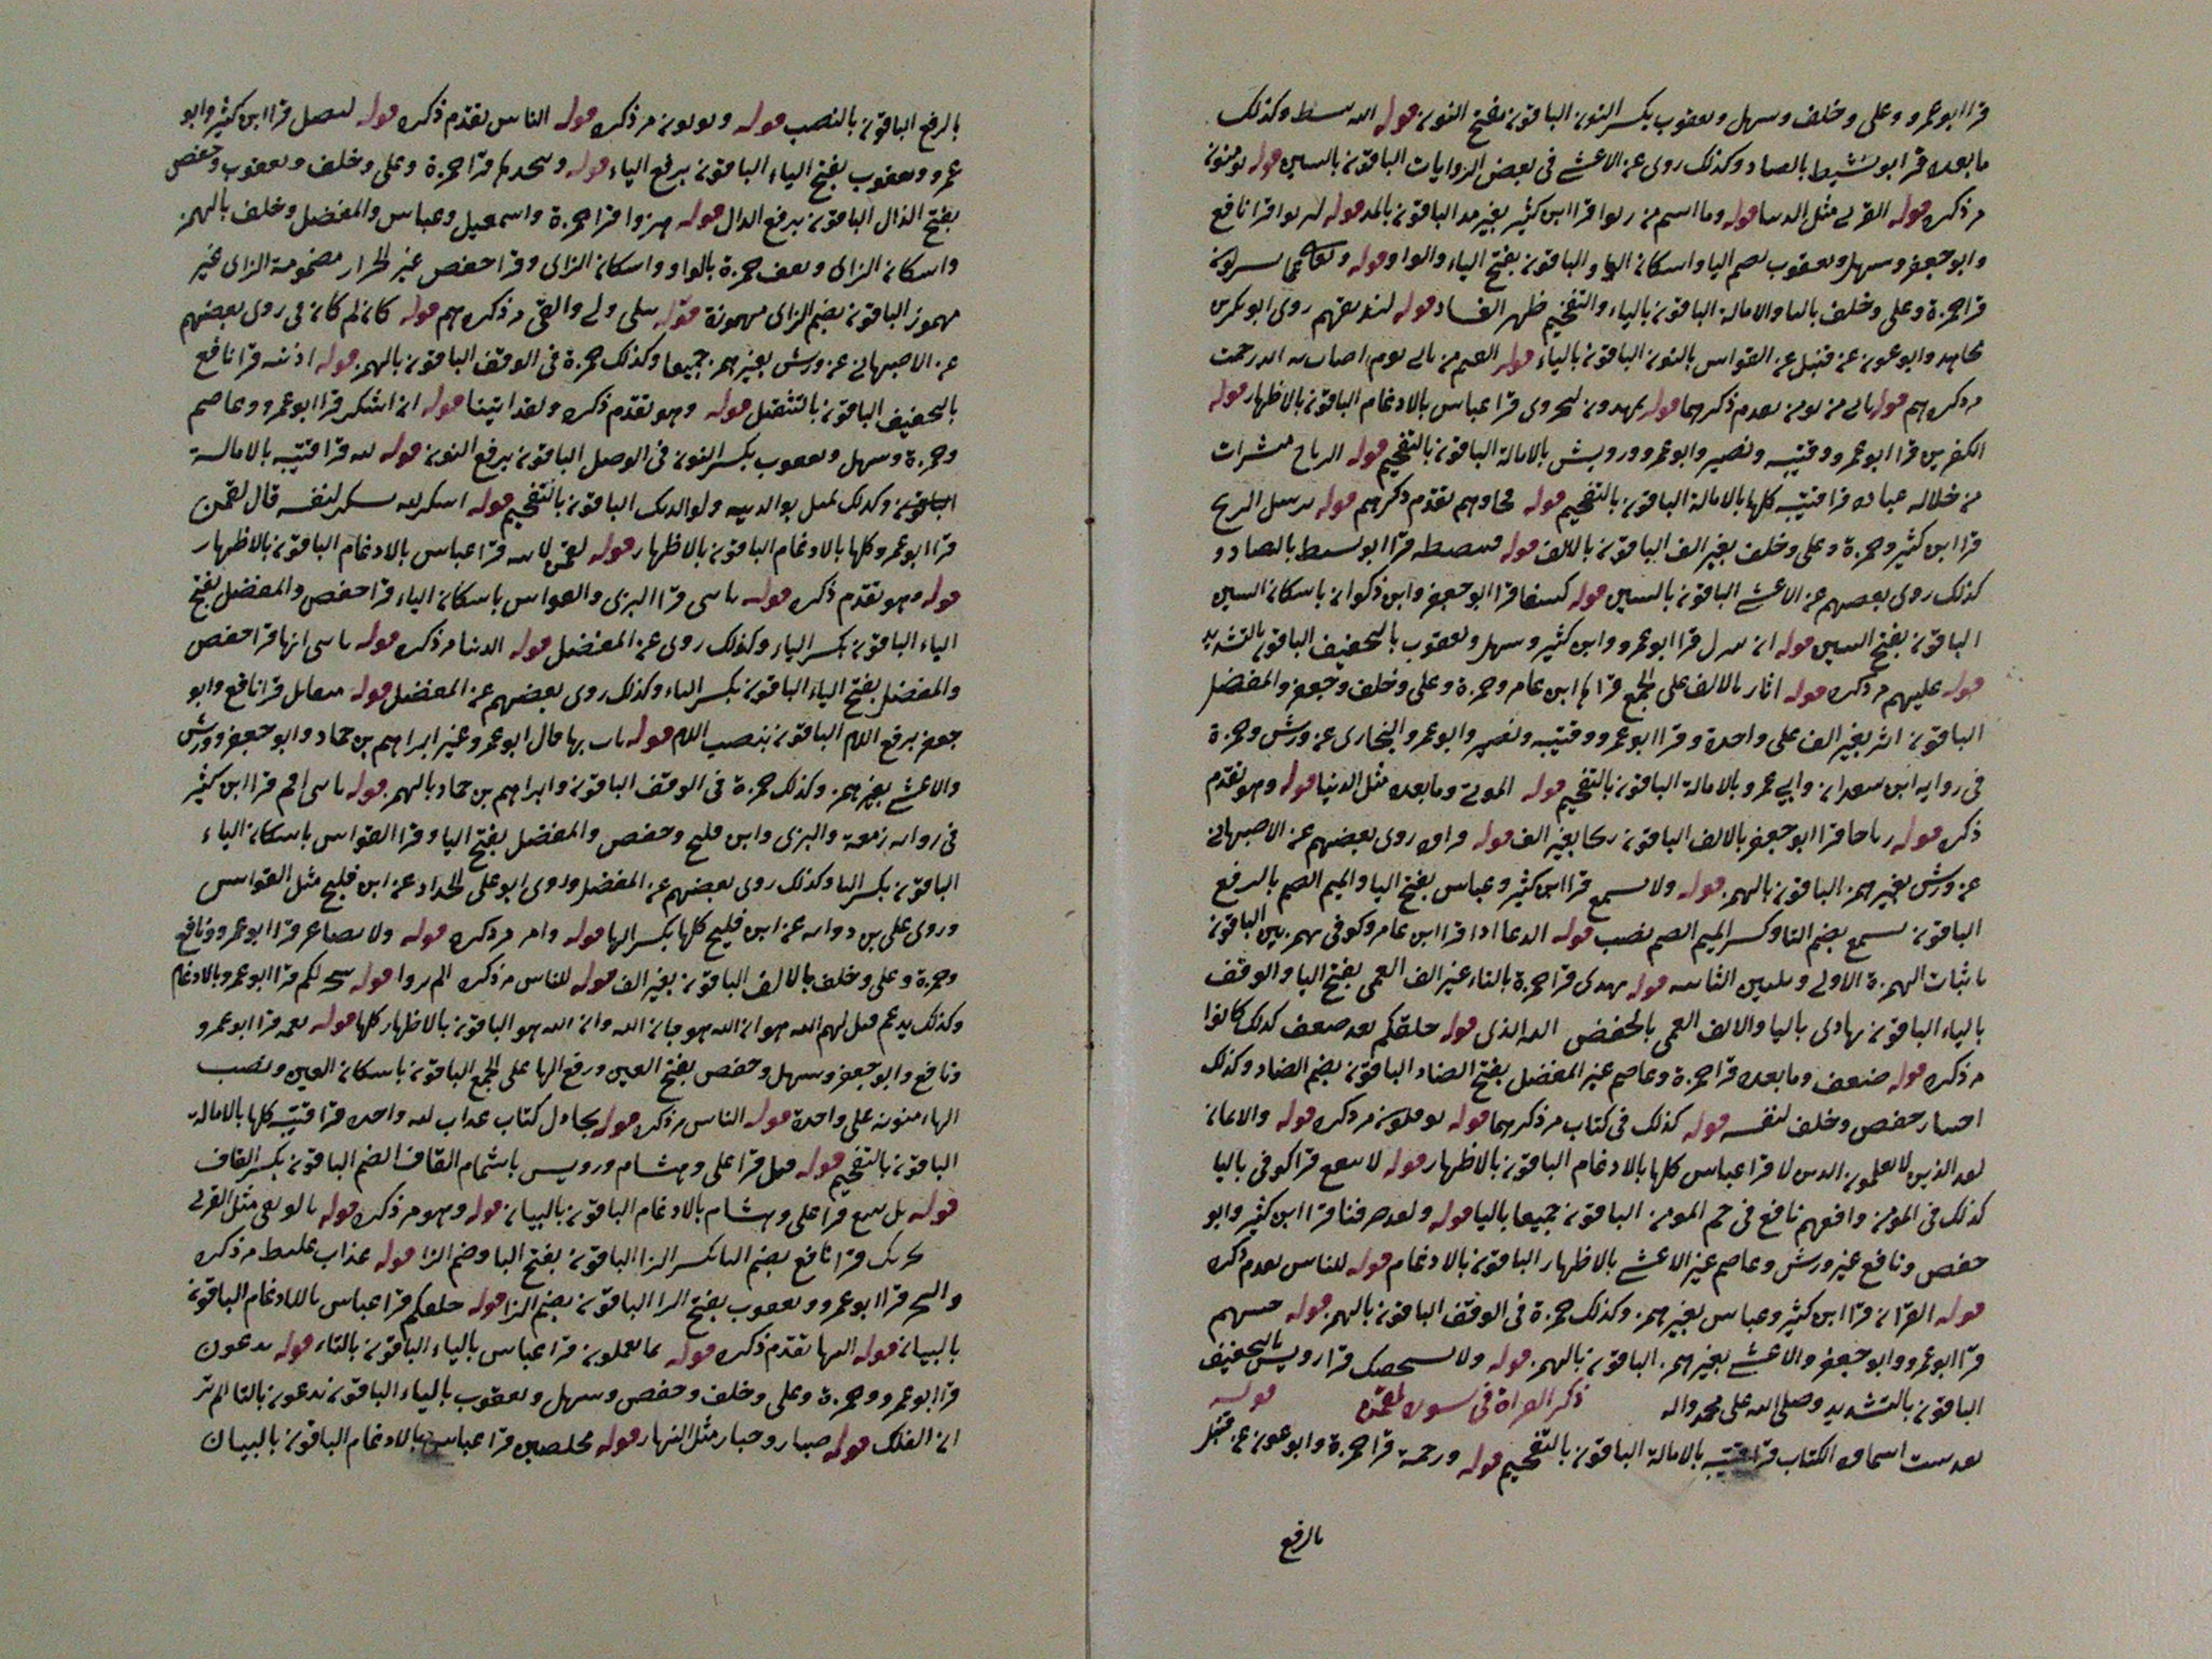 قرا ابو عمرو وعلى وخلف وسهل ويعقوب بكسر النون الباقون بفتح النون قوله الله يبسط وكذلك
ما بعده قرا ابو نشيط بالصاد وكذلك روى عن الاعشى فى بعض الروايات الباقون بالسين قوله يومنون
مر ذكره قوله القربى مثل الدنيا قوله وما اتيتم من ربوا قرا ابن كثير بغير مد الباقون بالمد قوله لتربوا قرا نافع
وابو جعفر وسهل ويعقوب بضم التا واسكان الواو الباقون بفتح الياء والواو قوله وتعالى عما يشركون
قرا حمزة وعلى وخلف بالتا والامالة الباقون بالياء والتفخيم ظهر الفساد قوله لنذيقهم روى ابو بكر بن
مجاهد وابو عون عن قنبل عن القواس بالنون الباقون بالياء قوله القيم من ياتى يوم اصاب به الى رحمت
مر ذكرهم قوله ياتى من يومن تقدم ذكرهما قوله يمهدون ليجزى قرا عباس بالادغام الباقون بالاظهار قوله
الكفرين قرا ابو عمرو وقتيبه ونصير وابو عمرو ورويس بالامالة الباقون بالتفخيم قوله الرياح مبشرات
من خلاله عباده قرا قتيبه كلها بالامالة الباقون بالتفخيم قوله فجاوهم تقدم ذكرهم قوله يرسل الريح
قرا ابن كثير وحمزة وعلى وخلف بغير الف الباقون بالالف قوله فيبسطه قرا ابو نشيط بالصاد و
كذلك روى بعضهم عن الاعشى الباقون بالسين قوله كسفا قرا ابو جعفر وابن ذكوان باسكان السين
الباقون بفتح السين قوله ان ينزل قرا ابو عمرو وابن كثير وسهل ويعقوب بالتخفيف الباقون بالتشديد
قوله عليهم مر ذكره قوله اثار بالالف على الجمع قراها ابن عامر وحمزة وعلى وخلف وحفص والمفضل
الباقون اثر بغير الف على واحدة وقرا ابو عمرو وقتيبه ونصير وابو عمرو والبخارى عن ورش وحمزة
فى رواية ابن سعدان وابى عمرو بالامالة الباقون بالتفخيم قوله الموتى وما بعده مثل الدنيا قوله وهو تقدم
ذكره قوله رياحا قرا ابو جعفر بالالف الباقون ريحا بغير الف قوله فراوه روى بعضهم عن الاصبهانى
عن ورش بغير همز الباقون بالهمز قوله ولا تسمع قرا ابن كثير وعباس بفتح اليا والميم الصم بالرفع
الباقون تسمع بضم التا وكسر الميم الصم نصب قوله الدعا اذا قرا ابن عامر وكوفى بهمزتين الباقون
باثبات الهمزة الاولى وتليين الثانيه قوله تهدى قرا حمزة بالتاء غير الف العمى بفتح اليا والوقف
بالياء الباقون بهادى بالبا والالف العمى بالخفض الله الذى قوله خلقكم بعد ضعف كذلك كانوا
مر ذكره قوله ضعف وما بعده قرا حمزة وعاصم غير المفضل بفتح الضاد الباقون بضم الضاد وكذلك
اختيار حفص وخلف لنفسه قوله كذلك فى كتاب مر ذكرهما قوله يوفكون مر ذكره قوله والايمان
لعد الذين لا يعلمون الذين لا قرا عباس كلها بالادغام الباقون بالاظهار قوله لا ينفع قرا كوفى باليا
كذلك فى المومن وافقهم نافع فى حم المومن الباقون جميعا بالتا قوله ولقد ضربنا قرا ابن كثير وابو
حفص ونافع غير ورش وعاصم غير الاعشى بالاظهار الباقون بالادغام قوله للناس تقدم ذكره
قوله القران قرا ابن كثير وعباس بغير همز وكذلك حمزة فى الوقف الباقون بالهمز قوله جيتهم
قرا ابو عمرو وابو جعفر والاعشى بغير همز الباقون بالهمز قوله ولا يستخفنك قرا رويس بالتخفيف
الباقون بالتشديد وصلى الله على محمد واله ذكر القراة فى سورة لقمن قوله
الكتاب قرا قتيبه بالامالة الباقون بالتفخيم قوله ورحمة قرا حمزة وابو عون عن قنبل
بالرفع
بالرفع الباقون بالنصب قوله ويوتون مر ذكره قوله الناس تقدم ذكره قوله ليضل قرا ابن كثير وابو
عمرو ويعقوب بفتح الياء الباقون برفع الياء قوله ويتخذها قرا حمزة وعلى وخلف ويعقوب وحفص
بفتح الذال الباقون برفع الدال قوله هزوا قرا حمزة واسمعيل وعباس والمفضل وخلف بالهمز
واسكان الزاى ويقف حمزة بالواو واسكان الزاى وقرا حفص غير الخراز مضمومة الزاى غير
مهموز الباقون بضم الزاى مهموزة قوله تتلى ولى والقى مر ذكرهم قوله كان لم كان فى روى بعضهم
عن الاصبهانى عن ورش بغير همز جميعا وكذلك حمزة فى الوقف الباقون بالهمز قوله اذنيه قرا نافع
بالتخفيف الباقون بالتثقيل قوله وهو تقدم ذكره ولقد اتينا قوله ان اشكر قرا ابو عمرو وعاصم
وحمزة وسهل ويعقوب بكسر النون فى الوصل الباقون برفع النون قوله لله قرا قتيبه بالامالة
وكذلك بوالديه ولوالديك الباقون بالتفخيم قوله اشكر لله يشكر لنفسه قال لقمن
قرا ابو عمرو كلها بالادغام الباقون بالاظهار قوله لقمن لابنه قرا عباس بالادغام الباقون بالاظهار
قوله وهو تقدم ذكره قوله يا بنى قرا البزى والقواس باسكان الياء قرا حفص والمفضل بفتح
الياء الباقون بكسر الياء وكذلك روى عن المفضل قوله الدنيا مر ذكره قوله يا بنى انها قرا حفص
والمفضل بفتح الياء الباقون بكسر الياء وكذلك روى بعضهم عن المفضل قوله مثقال قرا نافع وابو
جعفر برفع اللام الباقون بنصب اللام قوله يات بها قال ابو عمرو غير ابراهيم بن حماد وابو جعفر وورش
والاعشى بغير همز وكذلك حمزة فى الوقف الباقون وابراهيم بن حماد بالهمز قوله يا بنى اقم قرا ابن كثير
فى رواية زمعة والبزى وابن فليح وحفص والمفضل بفتح اليا وقرا القواس باسكان الياء
الباقون بكسر اليا وكذلك روى بعضهم عن المفضل وروى ابو على الحداد عن ابن فليح مثل القواس
وروى على بن عن ابن فليح كلها بكسر اليا قوله وامر مر ذكره قوله ولا تصاعر قرا ابو عمرو ونافع
وحمزة وعلى وخلف بالالف الباقون بغير الف قوله للناس مر ذكره الم تروا قوله سخر لكم قرا ابو عمرو بالادغام
وكذلك يدغم قيل لهم الله هو ان الله هو فان الله وان الله هو الباقون بالاظهار كلها قوله نعمه قرا ابو عمرو
ونافع وابو جعفر وسهل وحفص بفتح العين ورفع الها على الجمع الباقون باسكان العين ونصب
الهاء منونة على واحدة قوله الناس مر ذكره قوله يجادل كتاب عذاب لله واحده قرا قتيبه كلها بالامالة
الباقون بالتفخيم قوله قيل قرا على وهشام ورويس باشمام القاف الضم الباقون بكسر القاف
قوله بل نتبع قرا على وهشام بالادغام الباقون بالبيان قوله وهو مر ذكره قوله بالوثقى مثل القربى
يحزنك قرا نافع بضم اليا كسر الزا الباقون بفتح اليا وضم الزا قوله عذاب غليظ مر ذكره
والبحر قرا ابو عمرو ويعقوب بفتح الرا الباقون بضم الرا قوله خلقكم قرا عباس بالادغام الباقون
بالبيان قوله النهار تقدم ذكره قوله بما تعملون قرا عباس بالياء الباقون بالتاء قوله يدعون
قرا ابو عمرو وحمزة وعلى وخلف وحفص وسهل ويعقوب بالياء الباقون تدعون بالتا الم تر
ان الفلك قوله صبار وختار مثل النهار قوله مخلصين قرا عباس بالادغام الباقون بالبيان